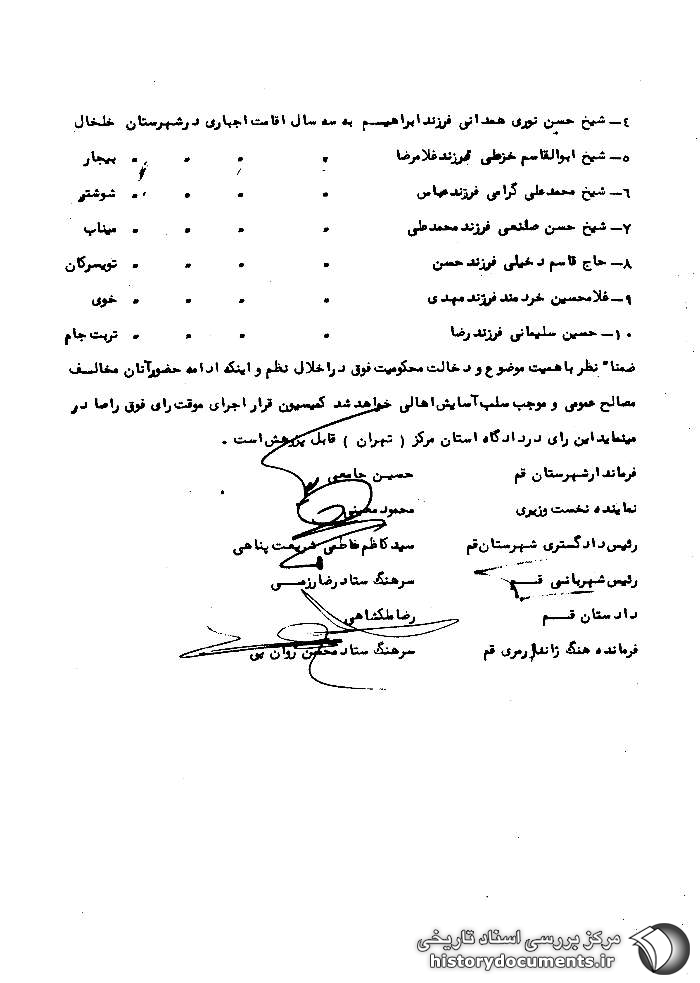 ٤ـ شیخ حسن نوری همدانی فرزند ابراهیم به سه سال اقامت اجباری در شهرستان خلخال
٥ـ شیخ ابوالقاسم خزعلی فرزند غلامرضا " " " " بیجار
٦ـ شیخ محمدعلی گرامی فرزند عباس " " " " شوشتر
٧ـ شیخ حسن صانعی فرزند محمدعلی " " " " میناب
٨ـ حاج قاسم دخیلی فرزند حسن " " " " تویسرکان
٩ـ غلامحسین خردمند فرزند مهدی " " " " خوی
١٠ـ حسین سلیمانی فرزند رضا " " " " تربت جام
ضمنا" نظر باهمیت موضوع و دخالت محکومیت فوق در اخلال نظم و اینکه ادامه حضور آنان مخالف
مصالح عمومی و موجب سلب آسایش اهالی خواهد شد کمیسیون قرار اجرای موقت رای فوق را صادر
مینماید این رای در دادگاه استان مرکز ( تهران ) قابل پژوهش است .
فرماندار شهرستان قم حسین جامعی
نماینده نخست وزیری محمود معینی
رئیس دادگستری شهرستان قم سید کاظم فاطمی شریعت پناهی
رئیس شهربانی قم سرهنگ ستاد رضا رزمی
دادستان قم رضا ملکشاهی
فرمانده هنگ ژاندارمری قم سرهنگ ستاد محسن روان بی
مرکز بررسی اسناد تاریخی
historydocuments.ir